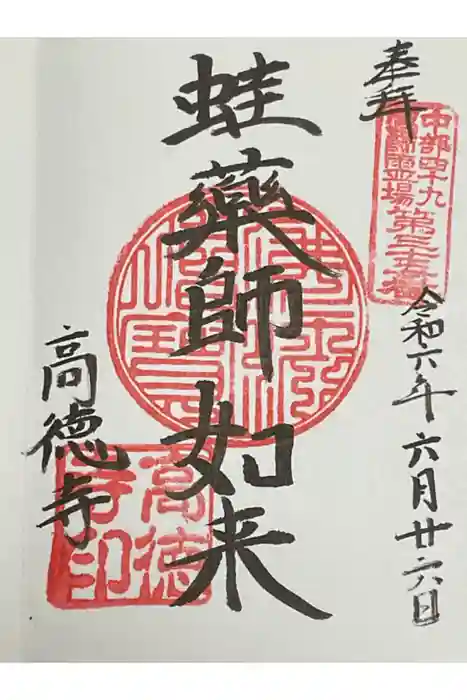 奉拝
中部四十九
薬師霊場第三十七番
令和六年六月廿六日
蛙薬師如来
高徳寺
高徳
寺印